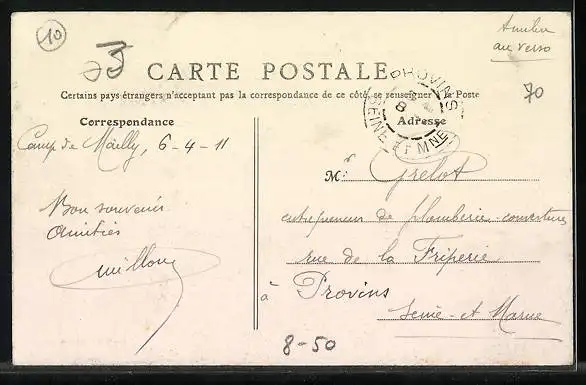 10
Timbre
au verso
CARTE POSTALE
70
Certains pays étrangers n'acceptant pas la correspondance de ce côté, se renseigner à la Poste
PROVINS
8
SEINE ET MNE
Correspondance
Adresse
Camp de Mailly, 6-4-11
Mr Grelot
Bon souvenir
entrepreneur de plomberie-couverture
Amitiés
rue de la Friperie
à Provins
Seine-et-Marne
8-50